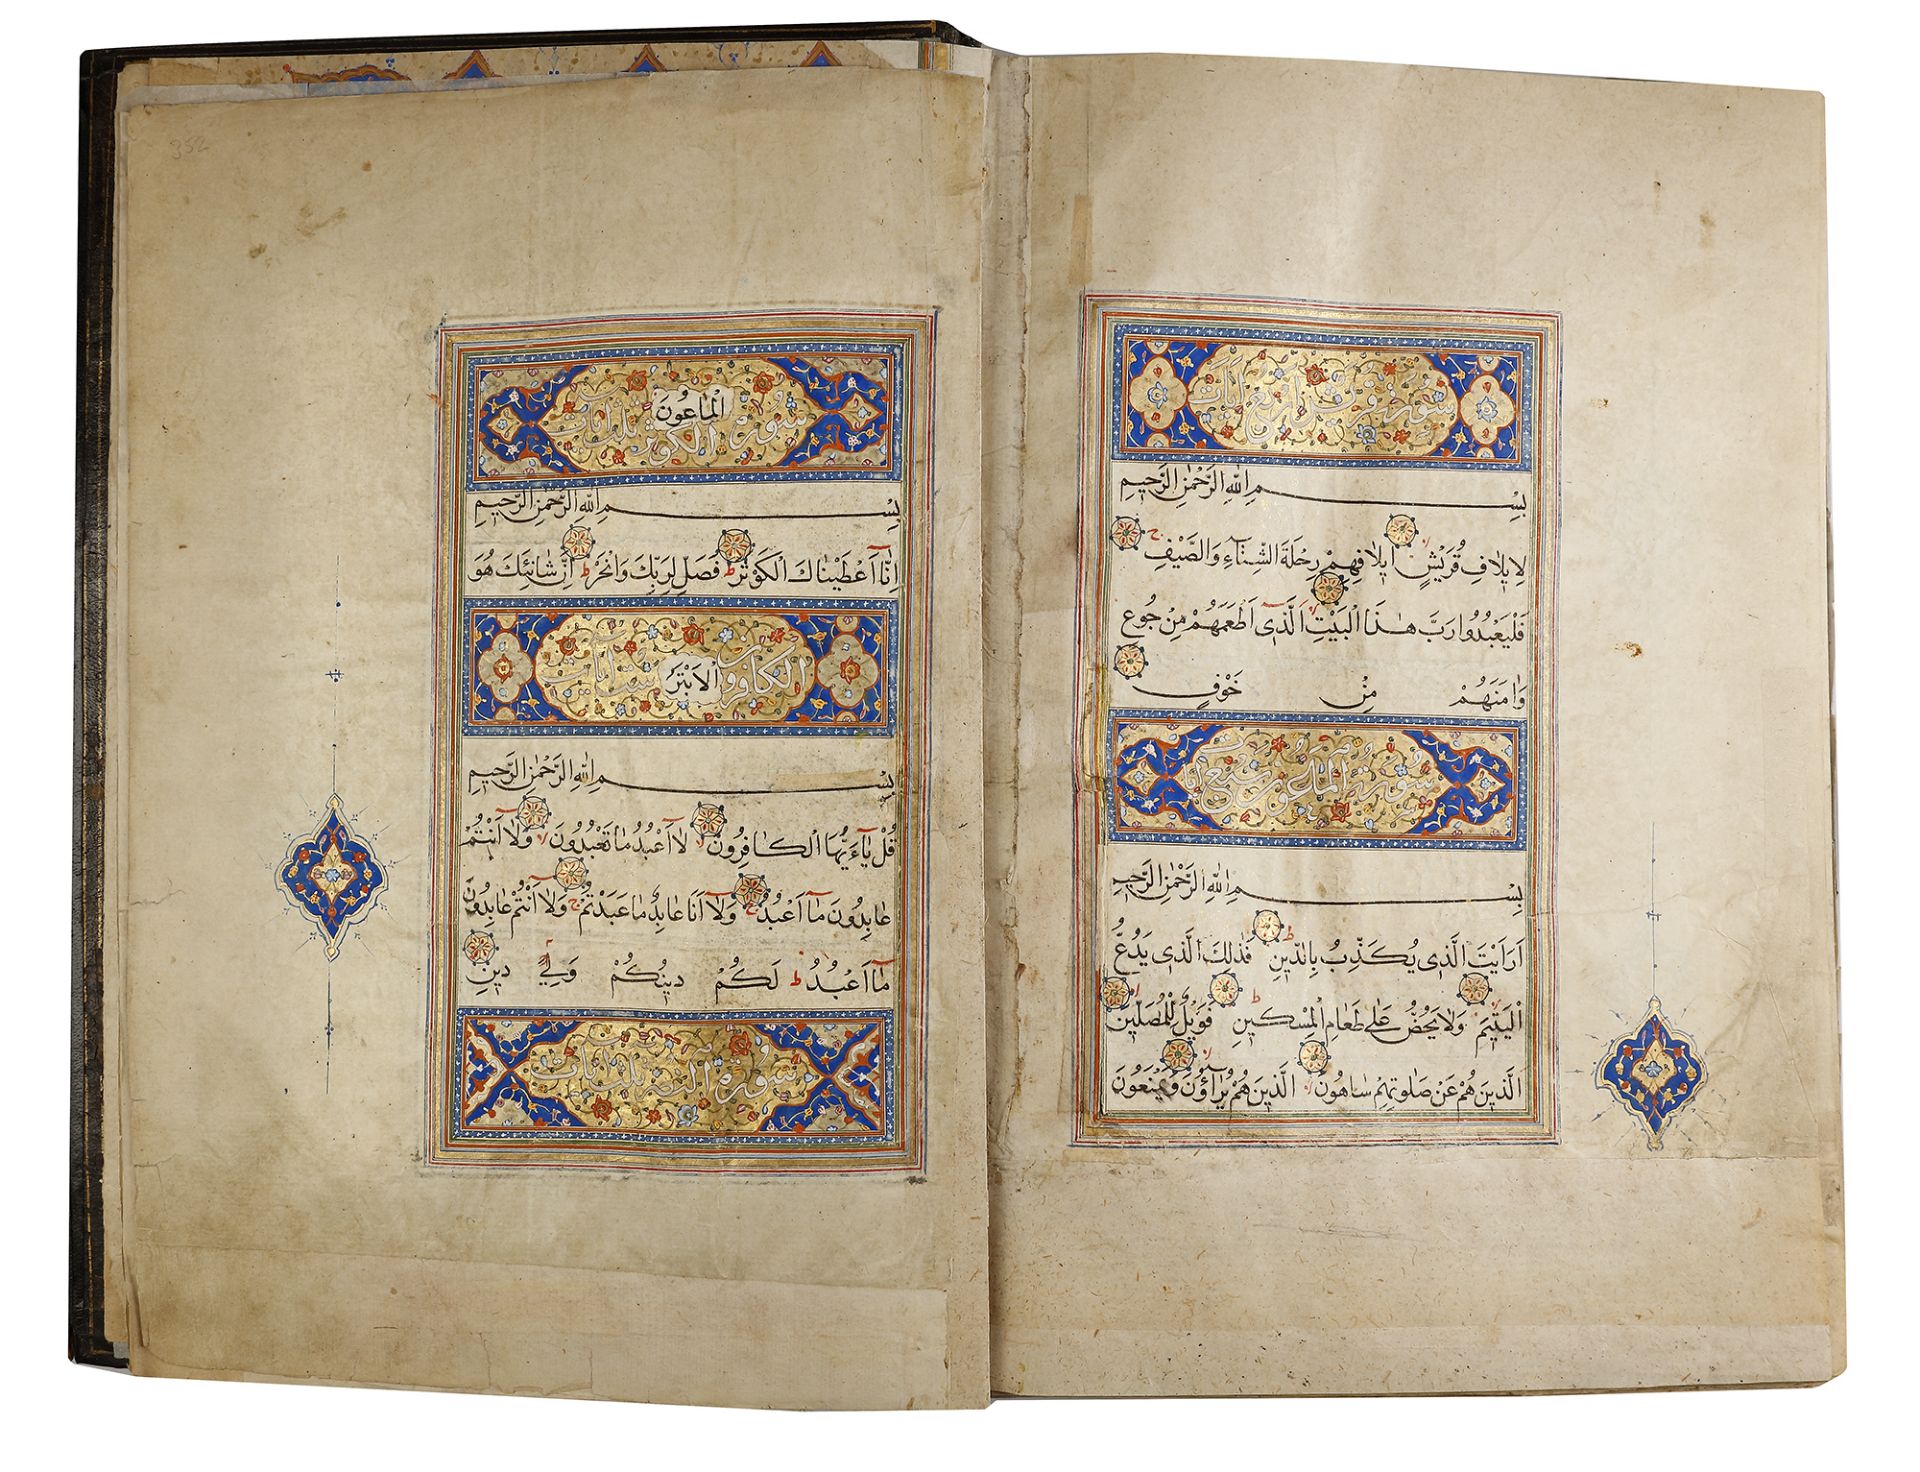 سورة قريش اربع آيات
بِسْمِ اللّٰهِ الرَّحْمٰنِ الرَّحِيمِ
لِاِيلَافِ قُرَيْشٍ اِيلَافِهِمْ رِحْلَةَ الشِّتَآءِ وَالصَّيْفِ
فَلْيَعْبُدُوا رَبَّ هٰذَا الْبَيْتِ اَلَّذِىٓ اَطْعَمَهُمْ مِنْ جُوعٍ
وَاٰمَنَهُمْ مِنْ خَوْفٍ
سورة الماعون سبع آيات
بِسْمِ اللّٰهِ الرَّحْمٰنِ الرَّحِيمِ
اَرَاَيْتَ الَّذِى يُكَذِّبُ بِالدِّينِ فَذٰلِكَ الَّذِى يَدُعُّ
الْيَتِيمَ وَلَا يَحُضُّ عَلٰى طَعَامِ الْمِسْكِينِ فَوَيْلٌ لِلْمُصَلِّينَ
الَّذِينَ هُمْ عَنْ صَلٰوتِهِمْ سَاهُونَ الَّذِينَ هُمْ يُرَآؤُنَ وَيَمْنَعُونَ
352
الْمَاعُونَ
سورة الكوثر ثلث آيات
بِسْمِ اللّٰهِ الرَّحْمٰنِ الرَّحِيمِ
اِنَّآ اَعْطَيْنَاكَ الْكَوْثَرَ فَصَلِّ لِرَبِّكَ وَانْحَرْ اِنَّ شَانِئَكَ هُوَ
الْاَبْتَرُ
الكافرون ست آيات
بِسْمِ اللّٰهِ الرَّحْمٰنِ الرَّحِيمِ
قُلْ يَآ ءَيُّهَا الْكَافِرُونَ لَآ اَعْبُدُ مَا تَعْبُدُونَ وَلَآ اَنْتُمْ
عَابِدُونَ مَآ اَعْبُدُ وَلَآ اَنَا عَابِدٌ مَا عَبَدْتُمْ وَلَآ اَنْتُمْ عَابِدُونَ
مَآ اَعْبُدُ لَكُمْ دِينُكُمْ وَلِيَ دِينِ
سورة النصر ثلث آيات